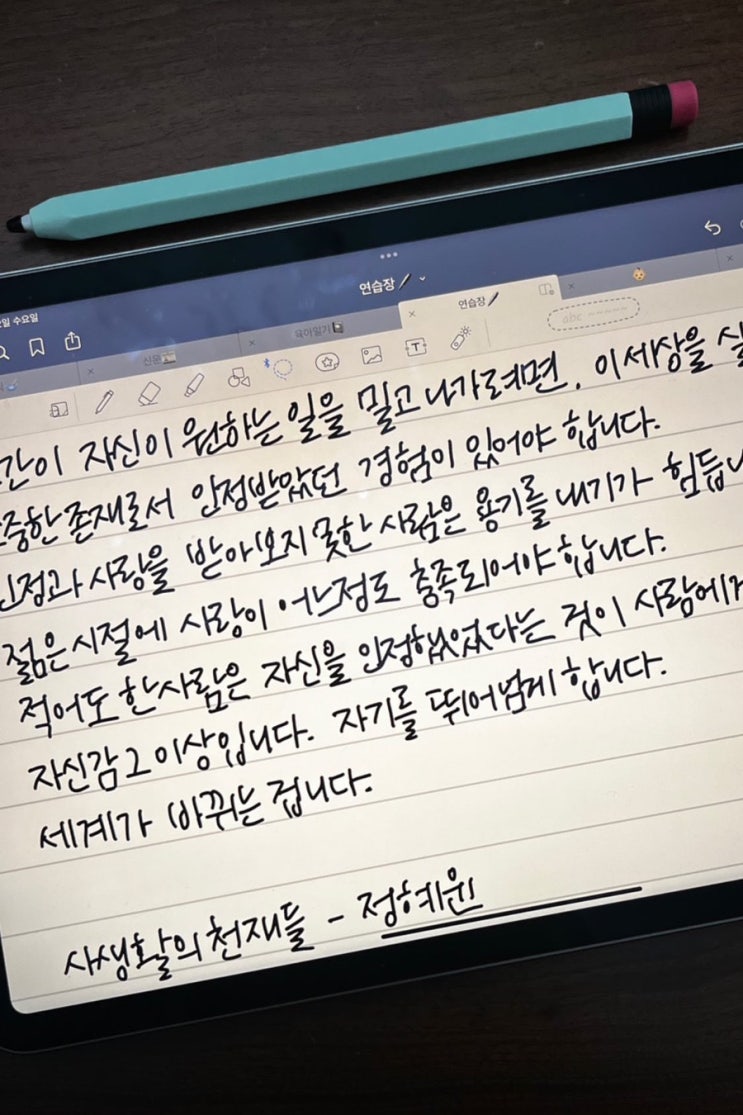 연습장
수요일
신문
육아일기
연습장
abc
T
자신이 원하는 일을 밀고 나가려면, 이 세상을
존재로서 인정받았던 경험이 있어야 합니다.
사랑을 받아보지 못한 사람은 용기를 내기가
젊은 시절에 사랑이 어느정도 충족되어야 합니다.
적어도 한사람은 자신을 인정했었다는 것이
자신감 그 이상입니다. 자기를 뛰어넘게 합니다.
세계가 바뀌는 겁니다.
사생활의 천재들 - 정혜윤